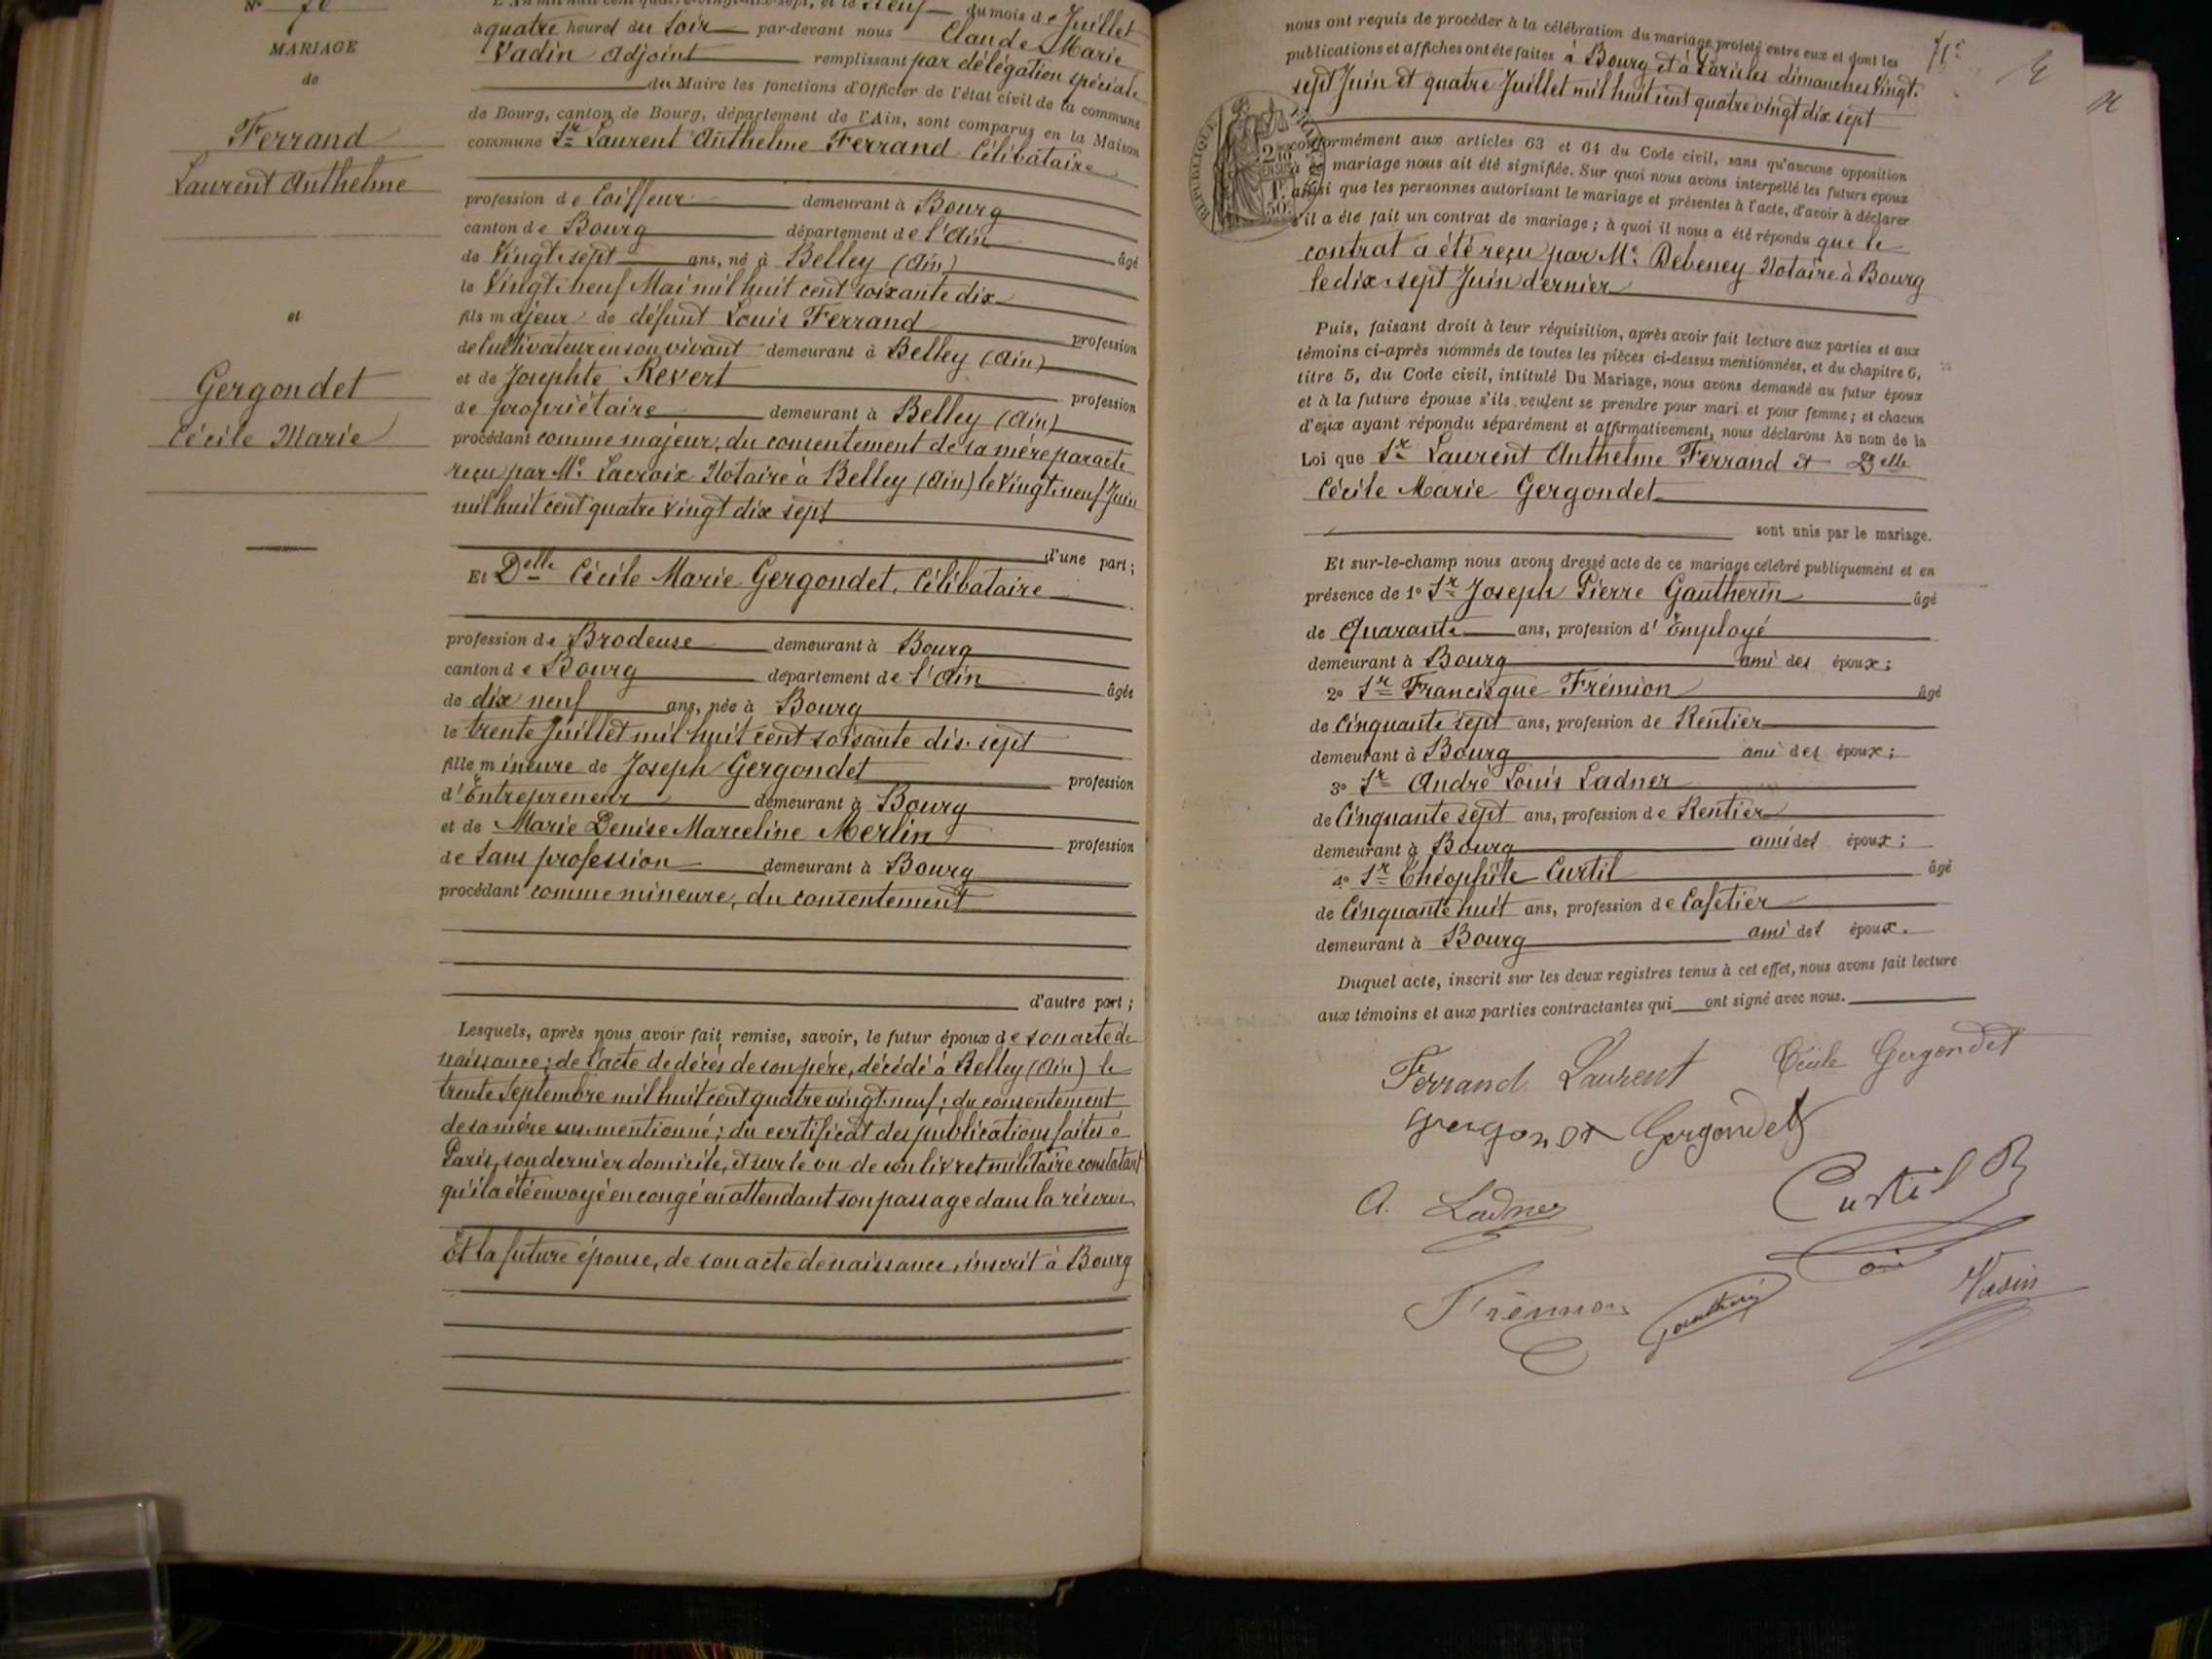 N° 70
MARIAGE
de
Ferrand
Laurent Anthelme
et
Gergondet
Cécile Marie
L'An mil huit cent quatre-vingt-dix-sept, et le Neuf du mois de Juillet
à quatre heures du Soir par-devant nous Claude Marie
Vadin Adjoint remplissant par délégation spéciale
du Maire les fonctions d'Officier de l'état civil de la commune
de Bourg, canton de Bourg, département de l'Ain, sont comparus en la Maison
commune Sr Laurent Anthelme Ferrand Célibataire
profession de Coiffeur demeurant à Bourg
canton de Bourg département de l'Ain
âgé
de Vingt-sept ans, né à Belley (Ain)
le Vingt-neuf Mai mil huit cent soixante dix
fils majeur de défunt Louis Ferrand profession
de Cultivateur en son vivant demeurant à Belley (Ain)
et de Josephte Revert profession
de propriétaire demeurant à Belley (Ain)
procédant comme majeur, du consentement de sa mère par acte
reçu par Me Lacroix Notaire à Belley (Ain) le Vingt-neuf Juin
mil huit cent quatre vingt dix sept
d'une part;
Et Delle Cécile Marie Gergondet, Célibataire
profession de Brodeuse demeurant à Bourg
canton de Bourg département de l'Ain
âgée
de dix neuf ans, née à Bourg
le trente Juillet mil huit cent soixante dix-sept
fille mineure de Joseph Gergondet profession
d'Entrepreneur demeurant à Bourg
et de Marie Denise Marceline Merlin profession
de Sans profession demeurant à Bourg
procédant comme mineure, du consentement
d'autre part;
Lesquels, après nous avoir fait remise, savoir, le futur époux de son acte de
naissance; de l'acte de décès de son père, décédé à Belley (Ain) le
trente Septembre mil huit cent quatre vingt-neuf; du consentement
de sa mère sus-mentionné; du certificat des publications faites à
Paris, son dernier domicile, et sur le vu de son livret militaire constatant
qu'il a été envoyé en congé en attendant son passage dans la réserve
Et la future épouse, de son acte de naissance, inscrit à Bourg
nous ont requis de procéder à la célébration du mariage projeté entre eux et dont les
publications et affiches ont été faites à Bourg et à Paris les dimanches Vingt-
sept Juin et quatre Juillet mil huit cent quatre vingt dix sept
conformément aux articles 63 et 64 du Code civil, sans qu'aucune opposition
à ce mariage nous ait été signifiée. Sur quoi nous avons interpellé les futurs époux
ainsi que les personnes autorisant le mariage et présentes à l'acte, d'avoir à déclarer
s'il a été fait un contrat de mariage; à quoi il nous a été répondu que le
contrat a été reçu par Me Debeney Notaire à Bourg
le dix-sept Juin dernier
Puis, faisant droit à leur réquisition, après avoir fait lecture aux parties et aux
témoins ci-après nommés de toutes les pièces ci-dessus mentionnées, et du chapitre 6,
titre 5, du Code civil, intitulé Du Mariage, nous avons demandé au futur époux
et à la future épouse s'ils veulent se prendre pour mari et pour femme; et chacun
d'eux ayant répondu séparément et affirmativement, nous déclarons Au nom de la
Loi que Sr Laurent Anthelme Ferrand et Delle
Cécile Marie Gergondet
sont unis par le mariage.
Et sur-le-champ nous avons dressé acte de ce mariage célébré publiquement et en
présence de 1° Sr Joseph Pierre Gautherin âgé
de Quarante ans, profession d'Employé
demeurant à Bourg ami des époux;
2° Sr Francisque Frémion âgé
de Cinquante sept ans, profession de Rentier
demeurant à Bourg ami des époux;
3° Sr André Louis Ladner
de Cinquante sept ans, profession de Rentier
demeurant à Bourg ami des époux;
4° Sr Théophile Curtil âgé
de Cinquante huit ans, profession de Cafetier
demeurant à Bourg ami des époux.
Duquel acte, inscrit sur les deux registres tenus à cet effet, nous avons fait lecture
aux témoins et aux parties contractantes qui ont signé avec nous.
Ferrand Laurent Cécile Gergondet
Gergondet
A. Ladner Curtil
Frémion Gautherin Vadin